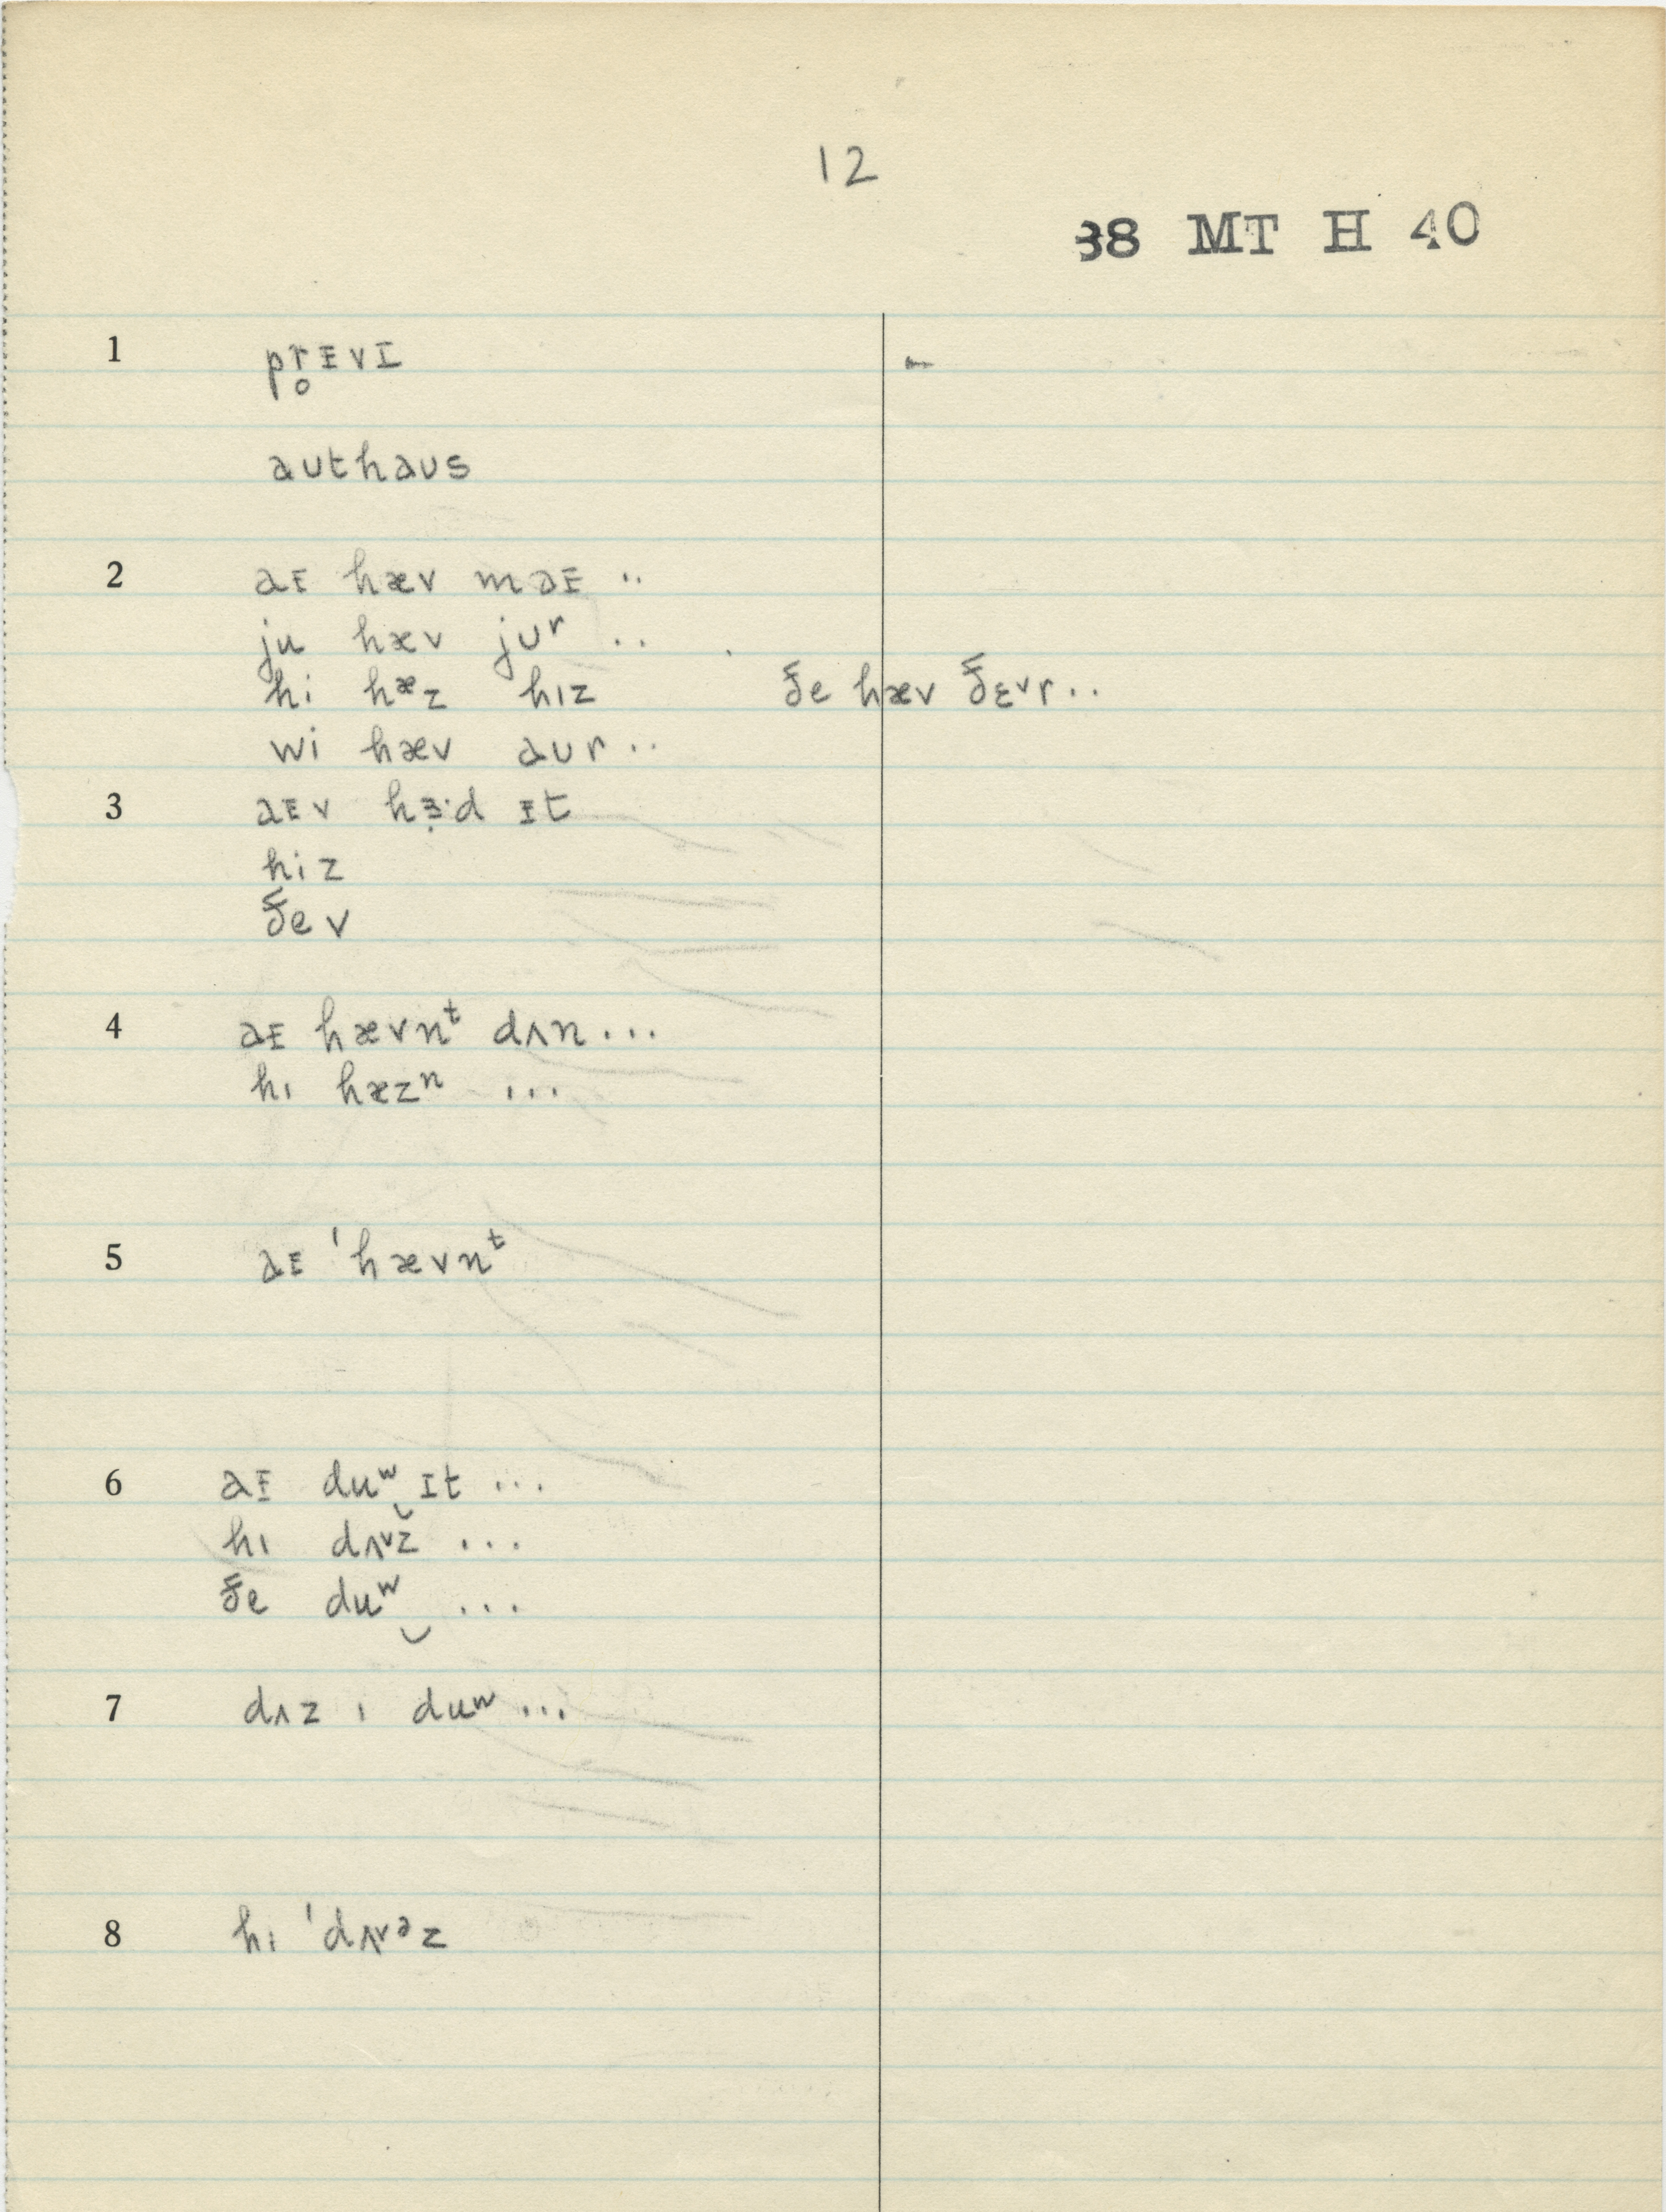 12
38 MT H 40
1 pr̥ɪvɪ -
aʊthaʊs
2 aɪ hæv maɪ ..
ju hæv jʊʳ ..
hi hæz hɪz ðe hæv ðɛᵛr..
wi hæv aʊr..
3 aɪv hɜ̣·d ɪt
hiz
ðev
4 aɪ hævnᵗ dʌn...
hɪ hæzⁿ ...
5 aɪ 'hævnᵗ
6 aɪ duʷ‿ɪt ...
hɪ dʌᵛz ...
ðe duʷ‿ ...
7 dʌz ɪ duʷ...
8 hɪ 'dʌᵛᵊz